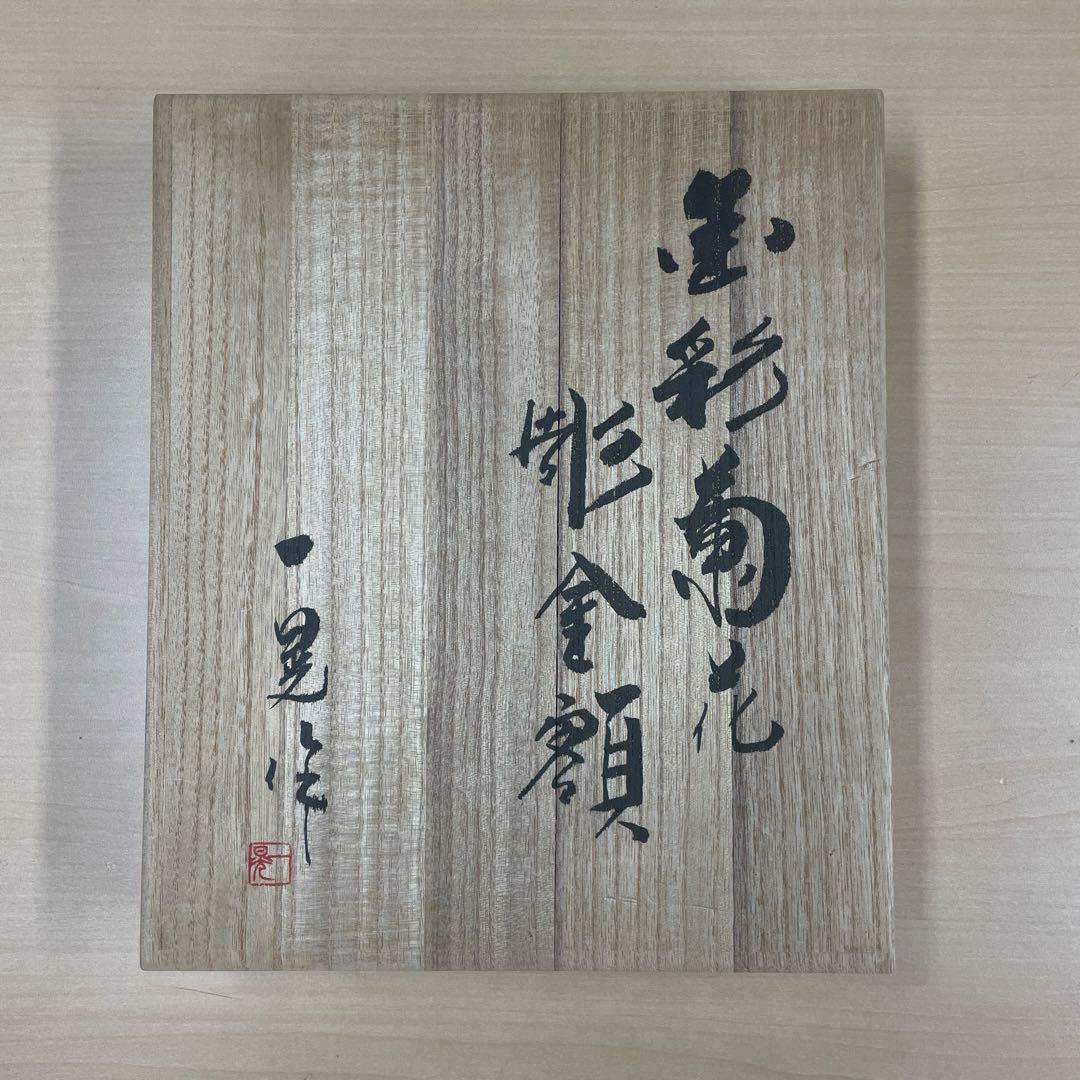 墨彩菊花
彫金額
一晃作
一晃